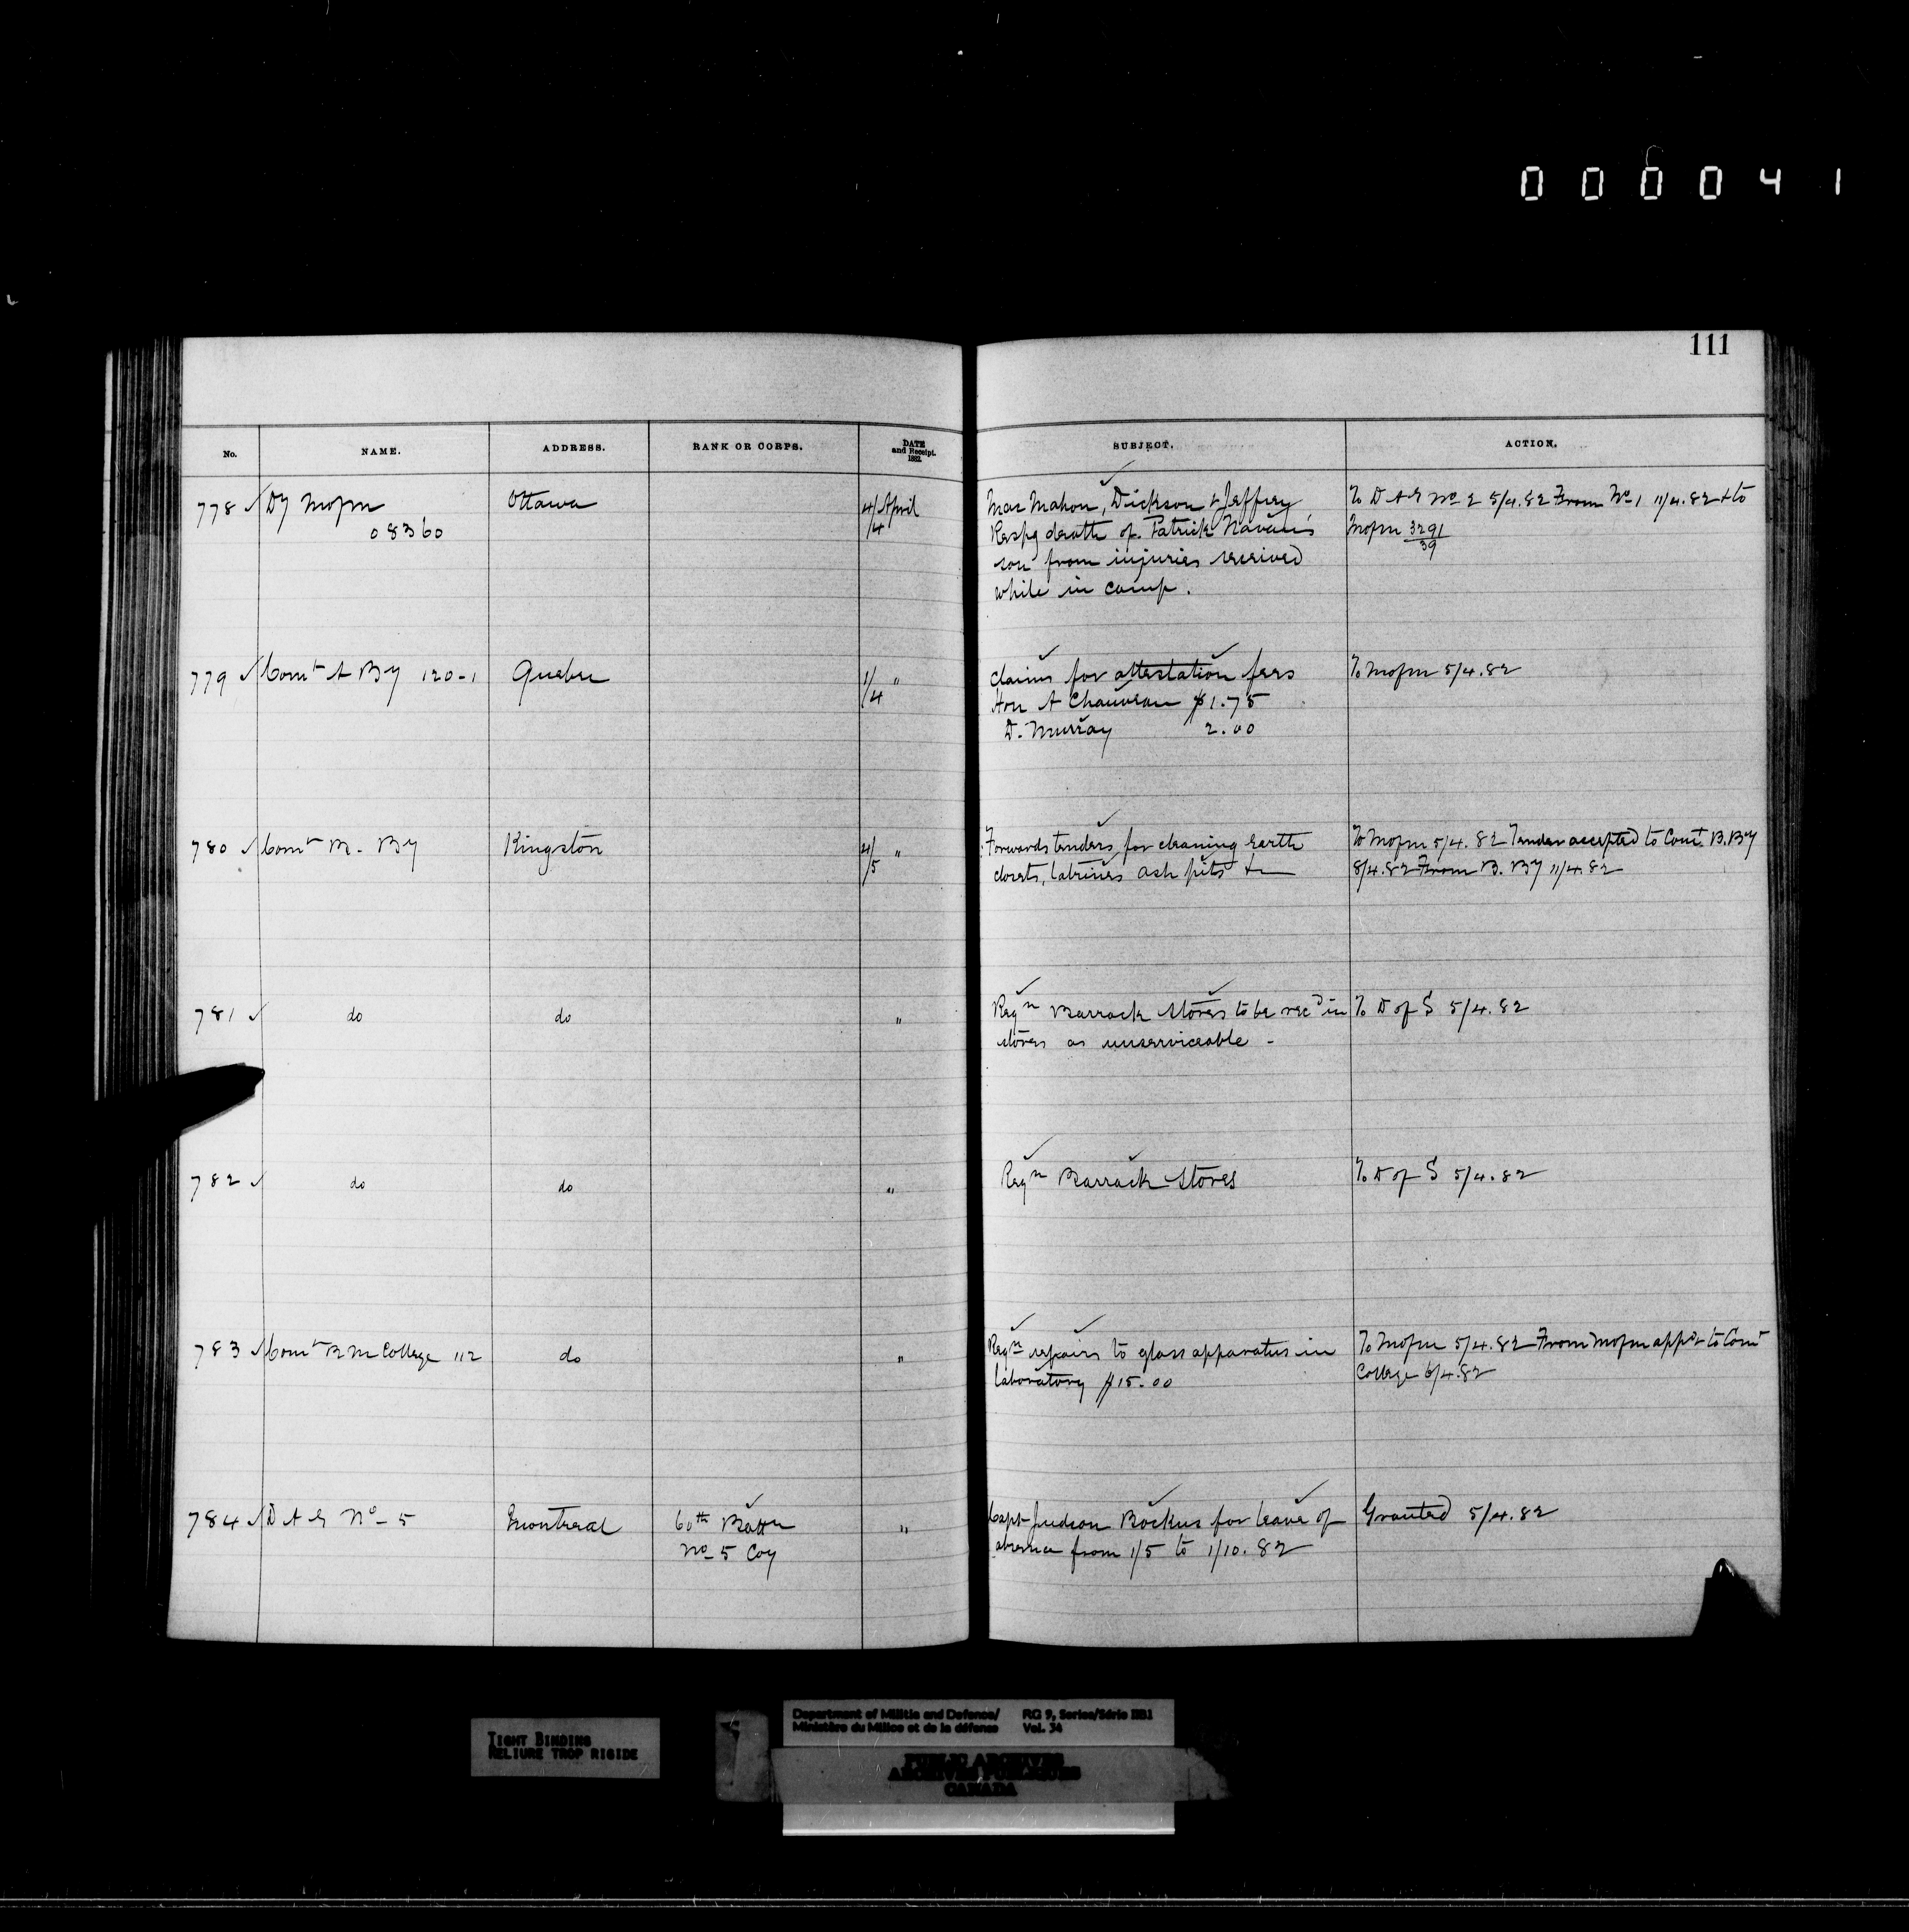 000041
111
No. NAME. ADDRESS. RANK OR CORPS. DATE and Receipt. 1882. SUBJECT. ACTION.
778 ✓ Dy Mofm Ottawa 4/4 April MacMahon, Dickson & Jeffery To D A G No 2 5/4.82 From No 1 11/4.82 & to
08360 Respg death of Patrick Navan's Mofm 3291/39
son from injuries received
while in camp.
779 ✓ Comt A By 120-1 Quebec 1/4 " claims for attestation fees To Mofm 5/4.82
Hon A Chauveau $1.75
D. Murray 2.00
780 ✓ Comt B. By Kingston 4/5 " Forwards tenders for cleaning Earth To Mofm 5/4.82 Tender accepted to Comt. B. By
closets, latrines ash pits &c 8/4.82 From B. By 11/4.82
781 ✓ do do " Reqn Barrack Stores to be recd in To D of S 5/4.82
stores as unserviceable -
782 ✓ do do " Reqn Barrack Stores To D of S 5/4.82
783 ✓ Comt R M College 112 do " Reqn repairs to glass apparatus in To Mofm 5/4.82 From Mofm appd & to Comt
laboratory $15.00 College 6/4.82
784 ✓ D A G No- 5 Montreal 60th Battn " Capt Judson Bockus for leave of Granted 5/4.82
No- 5 Coy absence from 1/5 to 1/10.82
TIGHT BINDING
RELIURE TROP RIGIDE
Department of Militia and Defence/ RG 9, Series/Série IIB1
Ministère du Milice et de la défense Vol. 34
PUBLIC ARCHIVES
ARCHIVES PUBLIQUES
CANADA